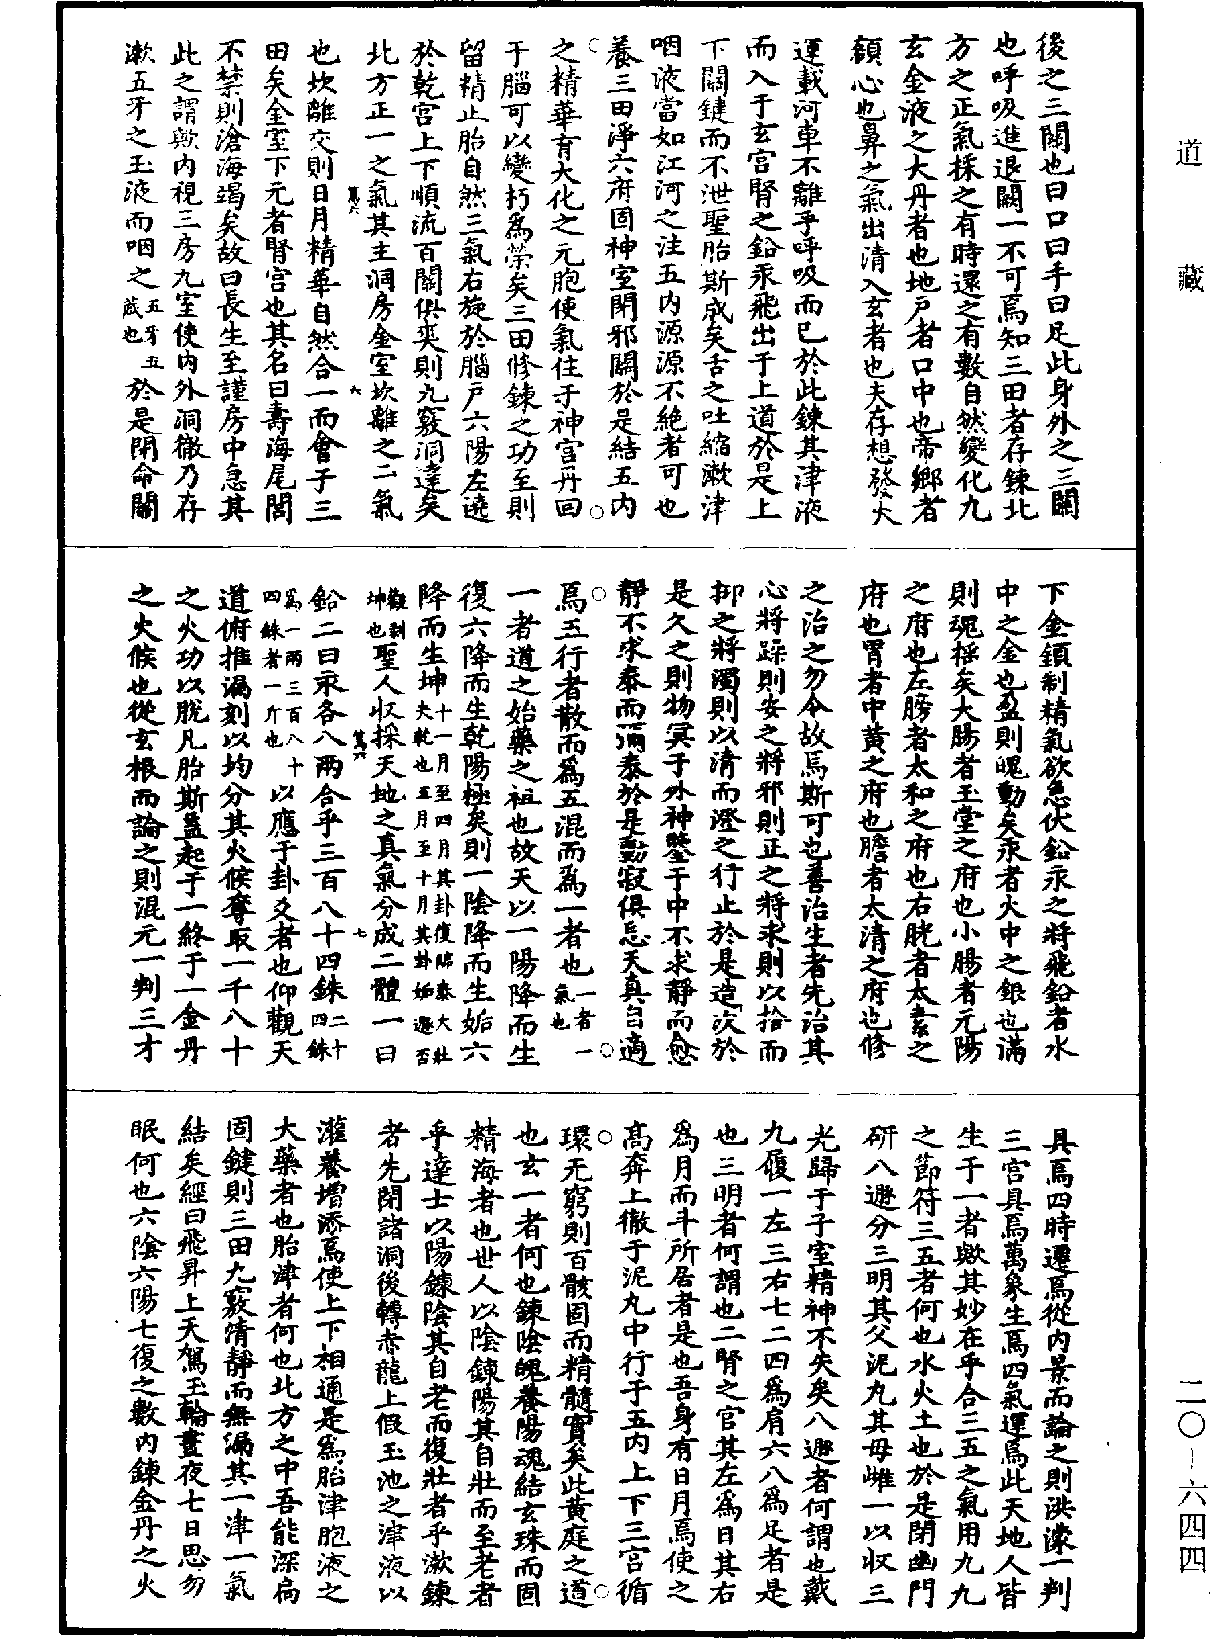 道藏
二〇-六四四
後之三關也曰口曰手曰足此身外之三關
也呼吸進退闕一不可焉知三田者存鍊北
方之正氣採之有時還之有數自然變化九
玄金液之大丹者也地戶者口中也帝鄉者
額心也鼻之氣出清入玄者也夫存想發火
運載河車不離乎呼吸而已於此鍊其津液
而入于玄宮腎之鉛汞飛出于上道於是上
下關鍵而不泄聖胎斯成矣舌之吐縮漱津
咽液當如江河之注五內源源不絕者可也
養三田淨六府固神室閉邪關於是結五內
之精華育大化之元胞使氣住于神宮丹回
于腦可以變朽為榮矣三田修鍊之功至則
留精止胎自然三氣右旋於腦戶六陽左遶
於乾宮上下順流百關俱爽則九竅洞達矣
北方正一之氣其主洞房金室坎離之二氣
萬六 六
也坎離交則日月精華自然合一而會于三
田矣金室下元者腎宮也其名曰壽海尾閭
不禁則滄海竭矣故曰長生至謹房中急其
此之謂歟內視三房九室使內外洞徹乃存
漱五牙之玉液而咽之五牙五藏也於是閉命關
下金鎖制精氣欲急伏鉛汞之將飛鉛者水
中之金也盈則魄動矣汞者火中之銀也滿
則魂搖矣大腸者玉堂之府也小腸者元陽
之府也左膀者太和之府也右胱者太素之
府也胃者中黃之府也膽者太清之府也修
之治之勿令故焉斯可也善治生者先治其
心將躁則安之將邪則正之將求則以捨而
抑之將濁則以清而澄之行止於是造次於
是久之則物冥于外神鑒于中不求靜而愈
靜不求泰而彌泰於是動寂俱忘天真自適
焉五行者散而為五混而為一者也一者一氣也
一者道之始藥之祖也故天以一陽降而生
復六降而生乾陽極矣則一陰降而生姤六
降而生坤十一月至四月其卦復臨泰大壯夬乾也五月至十月其卦姤遯否
觀剝坤也聖人收採天地之真氣分成二體一曰
萬六 七
鉛二曰汞各八兩合乎三百八十四銖二十四銖
為一兩三百八十四銖者一斤也以應于卦爻者也仰觀天
道俯推漏刻以均分其火候奪取一千八十
之火功以脫凡胎斯蓋起于一終于一金丹
之火候也從玄根而論之則混元一判三才
具焉四時遷焉從內景而論之則洪濛一判
三宮具焉萬象生焉四氣運焉此天地人皆
生于一者歟其妙在乎合三五之氣用九九
之節符三五者何也水火土也於是閉幽門
研八遯分三明其父泥丸其母雌一以收三
光歸于子室精神不失矣八遯者何謂也戴
九履一左三右七二四為肩六八為足者是
也三明者何謂也二腎之官其左為日其右
為月而斗所居者是也吾身有日月焉使之
高奔上徹于泥丸中行于五內上下三宮循
環无窮則百骸固而精髓實矣此黃庭之道
也玄一者何也鍊陰魄養陽魂結玄珠而固
精海者也世人以陰鍊陽其自壯而至老者
乎達士以陽鍊陰其自老而復壯者乎漱鍊
者先閉諸洞後轉赤龍上假玉池之津液以
灌養增添焉使上下相通是為胎津胞液之
大藥者也胎津者何也北方之中吾能深扃
固鍵則三田九竅清靜而無漏其一津一氣
結矣經曰飛昇上天駕玉輪晝夜七日思勿
眠何也六陰六陽七復之數內鍊金丹之火